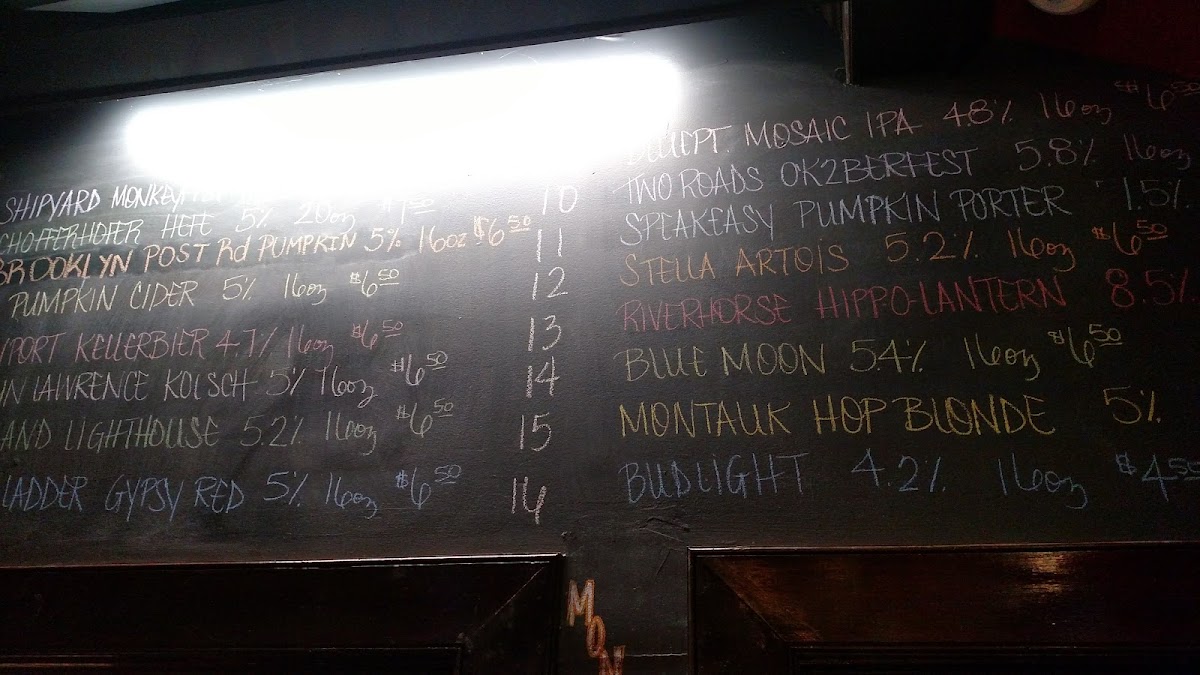 SHIPYARD MONKEY 
CHOFFERHOFER HEFE 5% 20oz $7.50
BROOKLYN POST Rd PUMPKIN 5% 16oz $6.50
PUMPKIN CIDER 5% 16oz $6.50
PORT KELLERBIER 4.7% 16oz $6.50
LAWRENCE KOLSCH 5% 16oz $6.50
AND LIGHTHOUSE 5.2% 16oz $6.50
LADDER GYPSY RED 5% 16oz $6.50
MOSAIC IPA 4.8% 16oz $6.50
10 TWO ROADS OK2BERFEST 5.8% 16oz
11 SPEAKEASY PUMPKIN PORTER 7.5%
12 STELLA ARTOIS 5.2% 16oz $6.50
13 RIVERHORSE HIPPO-LANTERN 8.5%
14 BLUE MOON 5.4% 16oz $6.50
15 MONTAUK HOP BLONDE 5%
16 BUDLIGHT 4.2% 16oz $4.50
MON